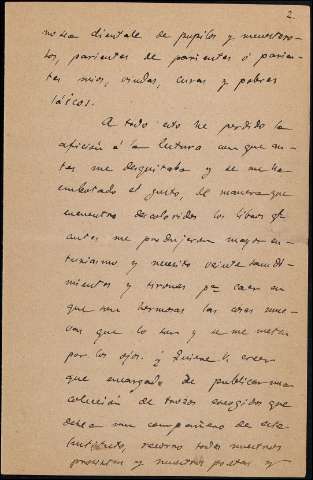 2.
nosa clientela de pupilos y menestero-
sos, parientes de parientes ó parien-
tes mios, viudas, curas y pobres
láicos.
A todo esto he perdido la
afición á la lectura con que an-
tes me desquitaba y se me ha
embotado el gusto, de manera que
encuentro descoloridos los libros qe
antes me produjeran mayor en-
tusiasmo y necesito veinte sacudi-
mientos y tirones pa caer en
que son hermosas las cosas nue-
vas que lo son y se me meten
por los ojos. ¿Quiere V. creer
que encargado de publicar una
colección de trozos escogidos que
desea un compañero de este
Instituto, recorro todos nuestros
prosistas y nuestros poetas y